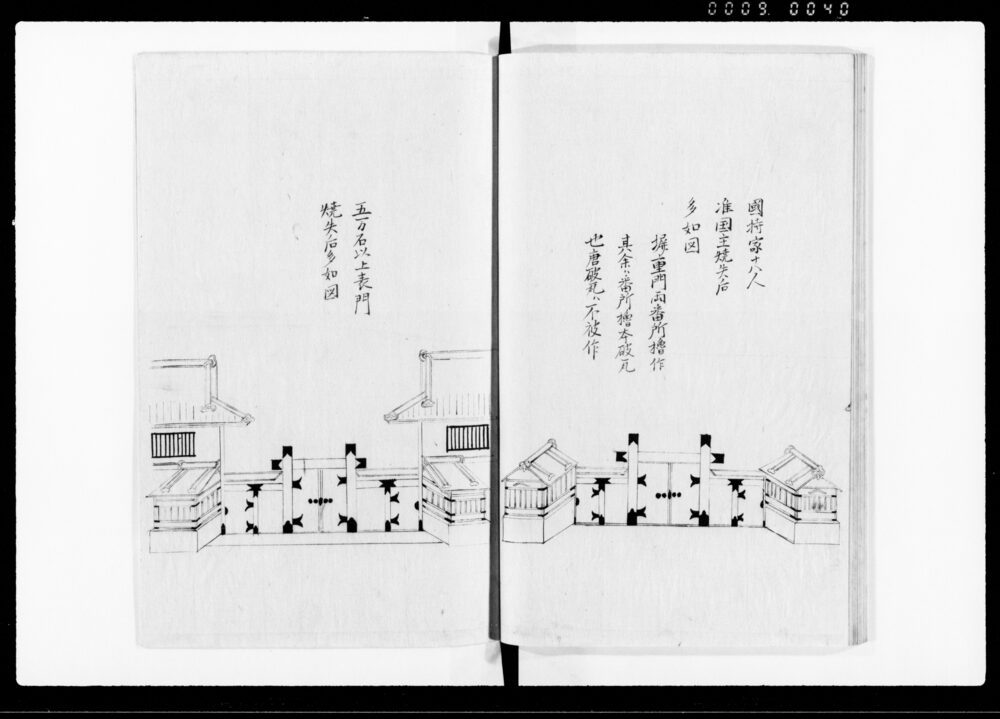 0009 0040
國持家十八人
准国主焼失后
多如図
塀重門両番所櫓作
其余ハ番所櫓本破瓦
也唐破瓦ハ不被作
五万石以上表門
焼失后多如図